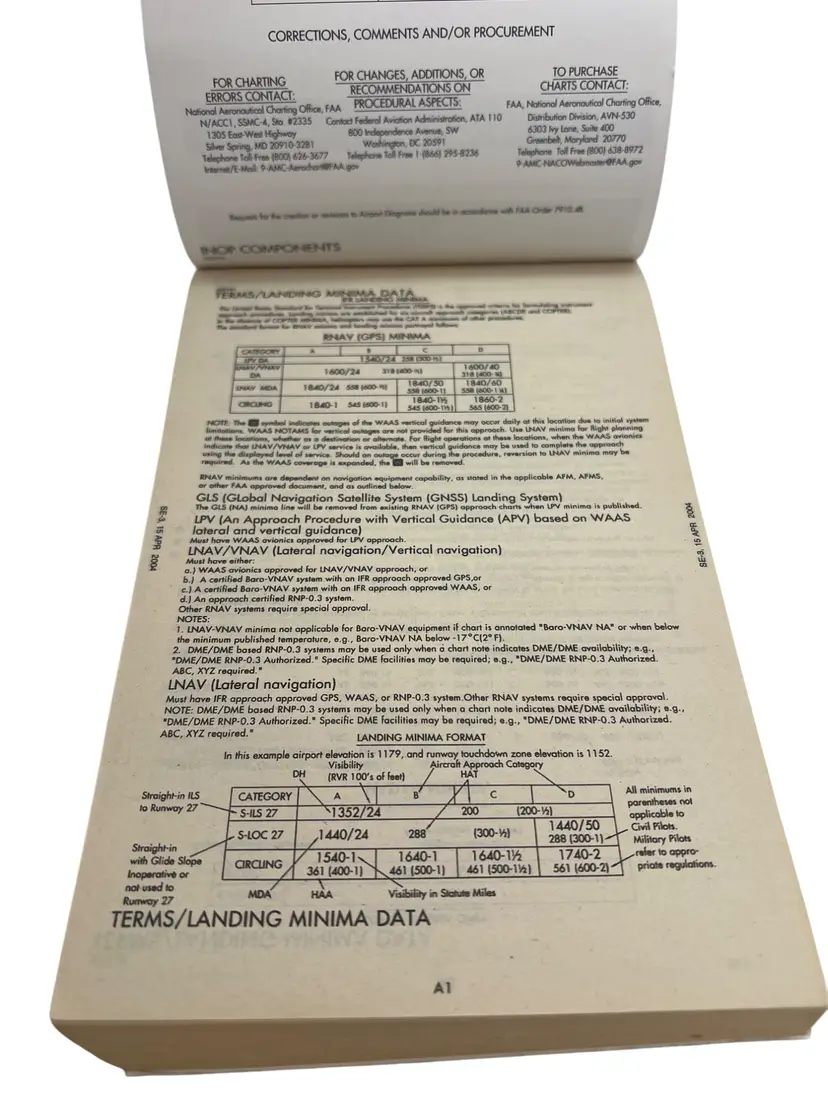 CORRECTIONS, COMMENTS AND/OR PROCUREMENT
FOR CHARTING
ERRORS CONTACT:
National Aeronautical Charting Office, FAA
N/ACC1, SSMC-4, Sta. #2335
1305 East-West Highway
Silver Spring, MD 20910-3281
Telephone Toll Free (800) 626-3677
Internet/E-Mail: 9-AMC-Aerochart@FAA.gov
FOR CHANGES, ADDITIONS, OR
RECOMMENDATIONS ON
PROCEDURAL ASPECTS:
Contact Federal Aviation Administration, ATA 110
800 Independence Avenue, SW
Washington, DC 20591
Telephone Toll Free 1-(866) 295-8236
TO PURCHASE
CHARTS CONTACT:
FAA, National Aeronautical Charting Office,
Distribution Division, AVN-530
6303 Ivy Lane, Suite 400
Greenbelt, Maryland 20770
Telephone Toll Free (800) 638-8972
9-AMC-NACOWebmaster@FAA.gov
Requests for the creation or revisions to Airport Diagrams should be in accordance with FAA Order 7910.4B.
INOP COMPONENTS
TERMS/LANDING MINIMA DATA
IFR LANDING MINIMA
The United States Standard for Terminal Instrument Procedures (TERPS) is the approved criteria for formulating instrument
approach procedures. Landing minima are established for six aircraft approach categories (ABCDE and COPTER).
In the absence of COPTER MINIMA, helicopters may use the CAT A minimums of other procedures.
The standard format for RNAV minima and landing minima portrayal follows:
RNAV (GPS) MINIMA
CATEGORY A B C D
LPV DA 1540/24 258 (300-½)
LNAV/VNAV DA 1600/24 318 (400-½) 1600/40 318 (400-¾)
LNAV MDA 1840/24 558 (600-½) 1840/50 558 (600-1) 1840/60 558 (600-1¼)
CIRCLING 1840-1 545 (600-1) 1840-1½ 545 (600-1½) 1860-2 565 (600-2)
NOTE: The W symbol indicates outages of the WAAS vertical guidance may occur daily at this location due to initial system
limitations. WAAS NOTAMS for vertical outages are not provided for this approach. Use LNAV minima for flight planning
at these locations, whether as a destination or alternate. For flight operations at these locations, when the WAAS avionics
indicate that LNAV/VNAV or LPV service is available, then vertical guidance may be used to complete the approach
using the displayed level of service. Should an outage occur during the procedure, reversion to LNAV minima may be
required. As the WAAS coverage is expanded, the W will be removed.
RNAV minimums are dependent on navigation equipment capability, as stated in the applicable AFM, AFMS,
or other FAA approved document, and as outlined below.
GLS (GLobal Navigation Satellite System (GNSS) Landing System)
The GLS (NA) minima line will be removed from existing RNAV (GPS) approach charts when LPV minima is published.
LPV (An Approach Procedure with Vertical Guidance (APV) based on WAAS
lateral and vertical guidance)
Must have WAAS avionics approved for LPV approach.
LNAV/VNAV (Lateral navigation/Vertical navigation)
Must have either:
a.) WAAS avionics approved for LNAV/VNAV approach, or
b.) A certified Baro-VNAV system with an IFR approach approved GPS,or
c.) A certified Baro-VNAV system with an IFR approach approved WAAS, or
d.) An approach certified RNP-0.3 system.
Other RNAV systems require special approval.
NOTES:
1. LNAV-VNAV minima not applicable for Baro-VNAV equipment if chart is annotated "Baro-VNAV NA" or when below
the minimum published temperature, e.g., Baro-VNAV NA below -17°C(2°F).
2. DME/DME based RNP-0.3 systems may be used only when a chart note indicates DME/DME availability; e.g.,
"DME/DME RNP-0.3 Authorized." Specific DME facilities may be required; e.g., "DME/DME RNP-0.3 Authorized.
ABC, XYZ required."
LNAV (Lateral navigation)
Must have IFR approach approved GPS, WAAS, or RNP-0.3 system.Other RNAV systems require special approval.
NOTE: DME/DME based RNP-0.3 systems may be used only when a chart note indicates DME/DME availability; e.g.,
"DME/DME RNP-0.3 Authorized." Specific DME facilities may be required; e.g., "DME/DME RNP-0.3 Authorized.
ABC, XYZ required."
LANDING MINIMA FORMAT
In this example airport elevation is 1179, and runway touchdown zone elevation is 1152.
DH
Visibility
(RVR 100's of feet)
Aircraft Approach Category
HAT
Straight-in ILS
to Runway 27
Straight-in
with Glide Slope
Inoperative or
not used to
Runway 27
CATEGORY A B C D
S-ILS 27 1352/24 200 (200-½)
S-LOC 27 1440/24 288 (300-½) 1440/50 288 (300-1)
CIRCLING 1540-1 361 (400-1) 1640-1 461 (500-1) 1640-1½ 461 (500-1½) 1740-2 561 (600-2)
All minimums in
parentheses not
applicable to
Civil Pilots.
Military Pilots
refer to appro-
priate regulations.
MDA
HAA
Visibility in Statute Miles
TERMS/LANDING MINIMA DATA
A1
SE-3, 15 APR 2004
SE-3, 15 APR 2004